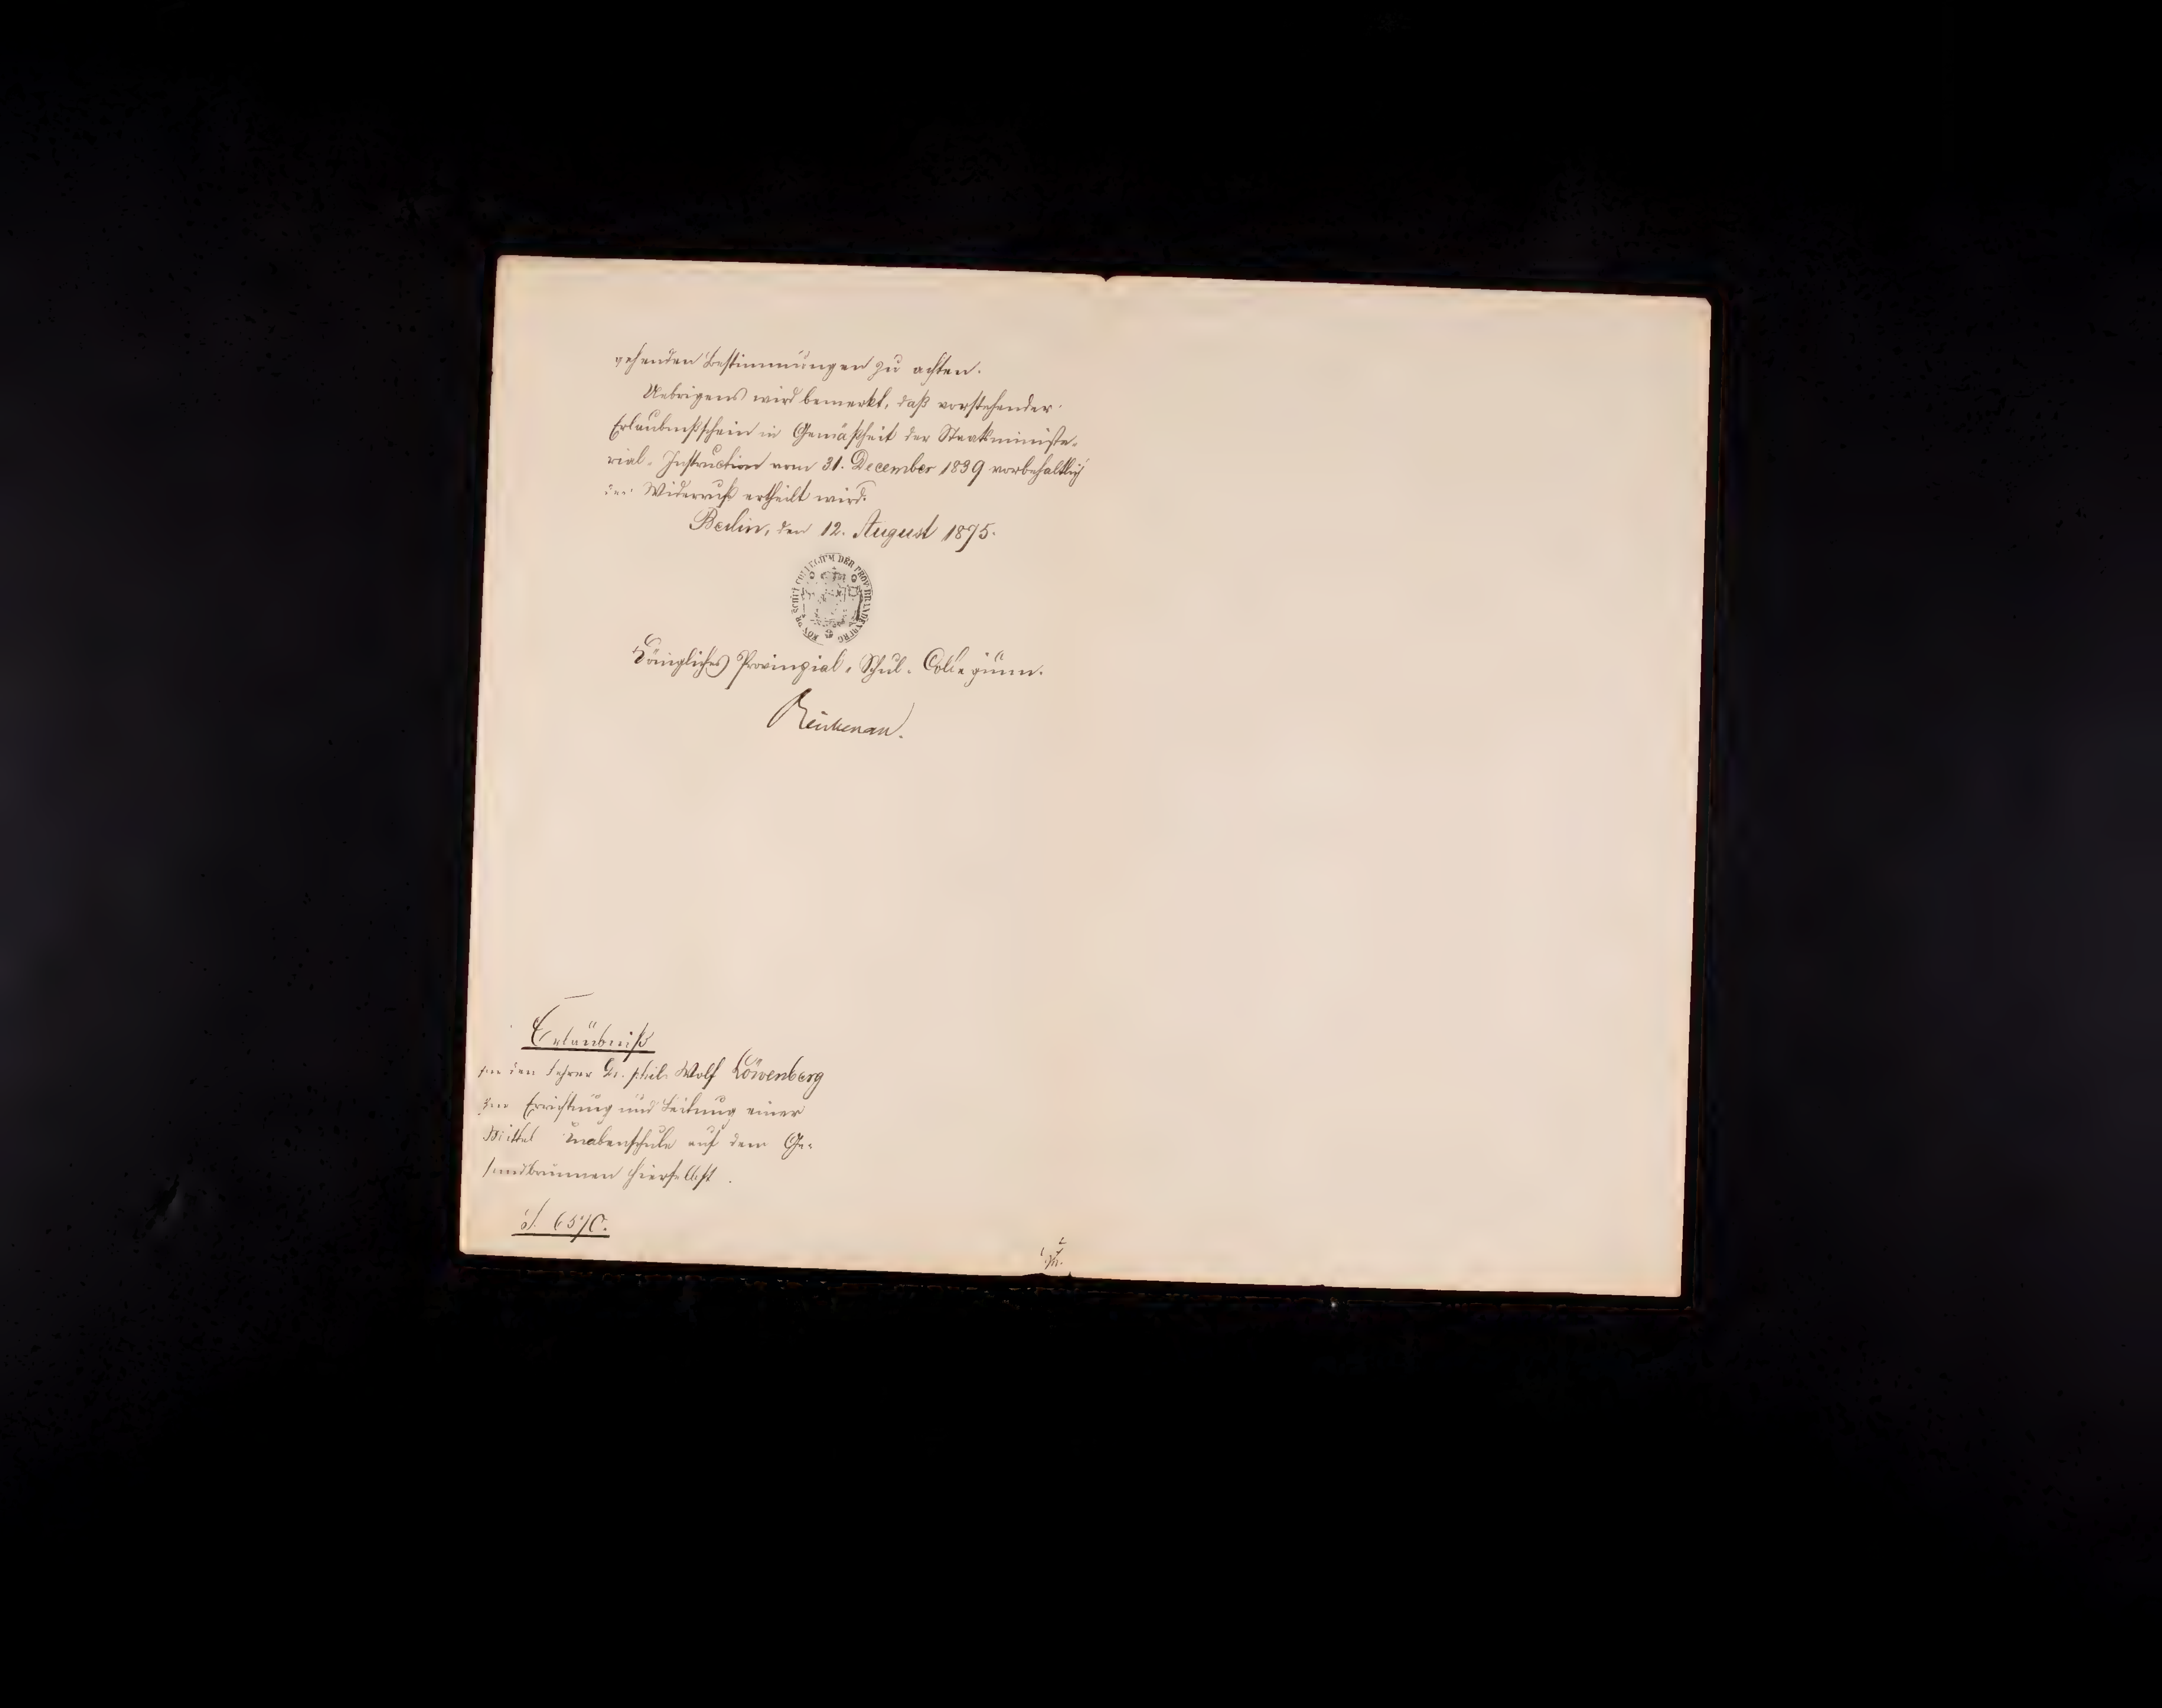 gehenden Bestimmungen zu achten.
Uebrigens wird bemerkt, daß vorstehender
Erlaubnißschein in Gemäßheit der Staatsministe-
rial-Instruction vom 31. December 1839 vorbehaltlich
des Widerrufs ertheilt wird.
Berlin, den 12. August 1875.
KÖN. PR. SCHUL COLLEGIUM DER PROV. BRANDENBURG
Königliches Provinzial-Schul-Collegium.
Reichenau.
Erlaubniß
für den Lehrer Dr. phil. Wolf Löwenberg
zur Errichtung und Leitung einer
Mittel Knabenschule auf dem Ge-
sundbrunnen hierselbst.
6570.